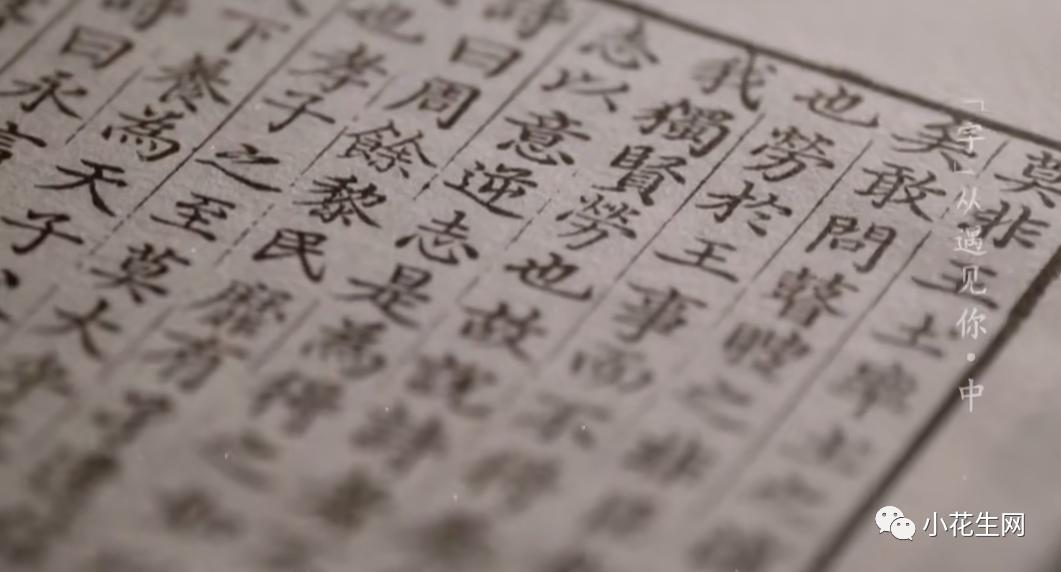 莫非王土率土之
矣敢問瞽瞍之非
也勞於王事而不得
我獨賢勞也故說詩
志以意逆志是為得之
詩曰周餘黎民靡有孑
也孝子之至莫大乎
下養為天子
詩曰永言
「字」从遇见你·中
小花生网